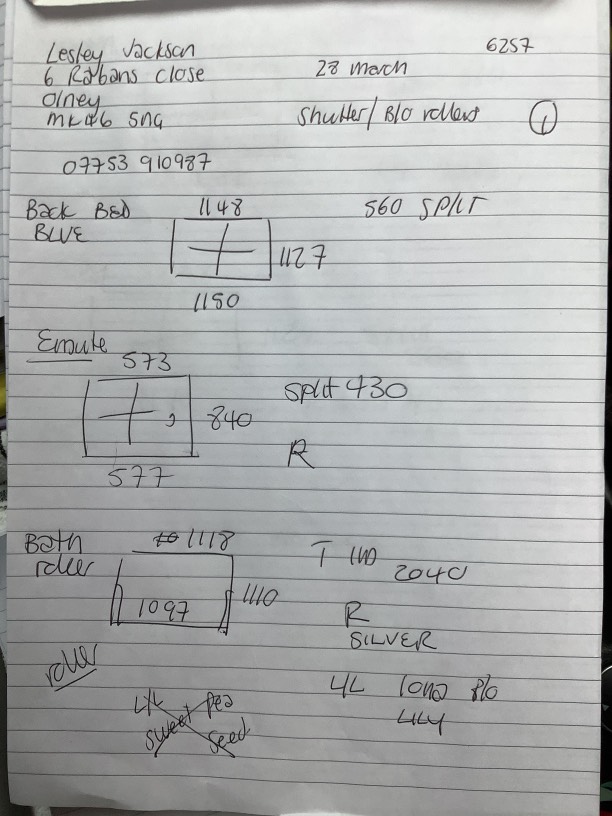 Lesley Jackson
6257
6 Rabans close
28 march
Olney
Shutter/ B/O rollers 1
MK46 5NG
07753 910987
Back Bed
1148
560 SPLIT
BLUE
1127
1150
573
split 430
840
R
577
Bath
1118
T
roller
2040
1110
1097
R
SILVER
roller
L/L
B/O
L/L
Pea
LILY
sweet
seed